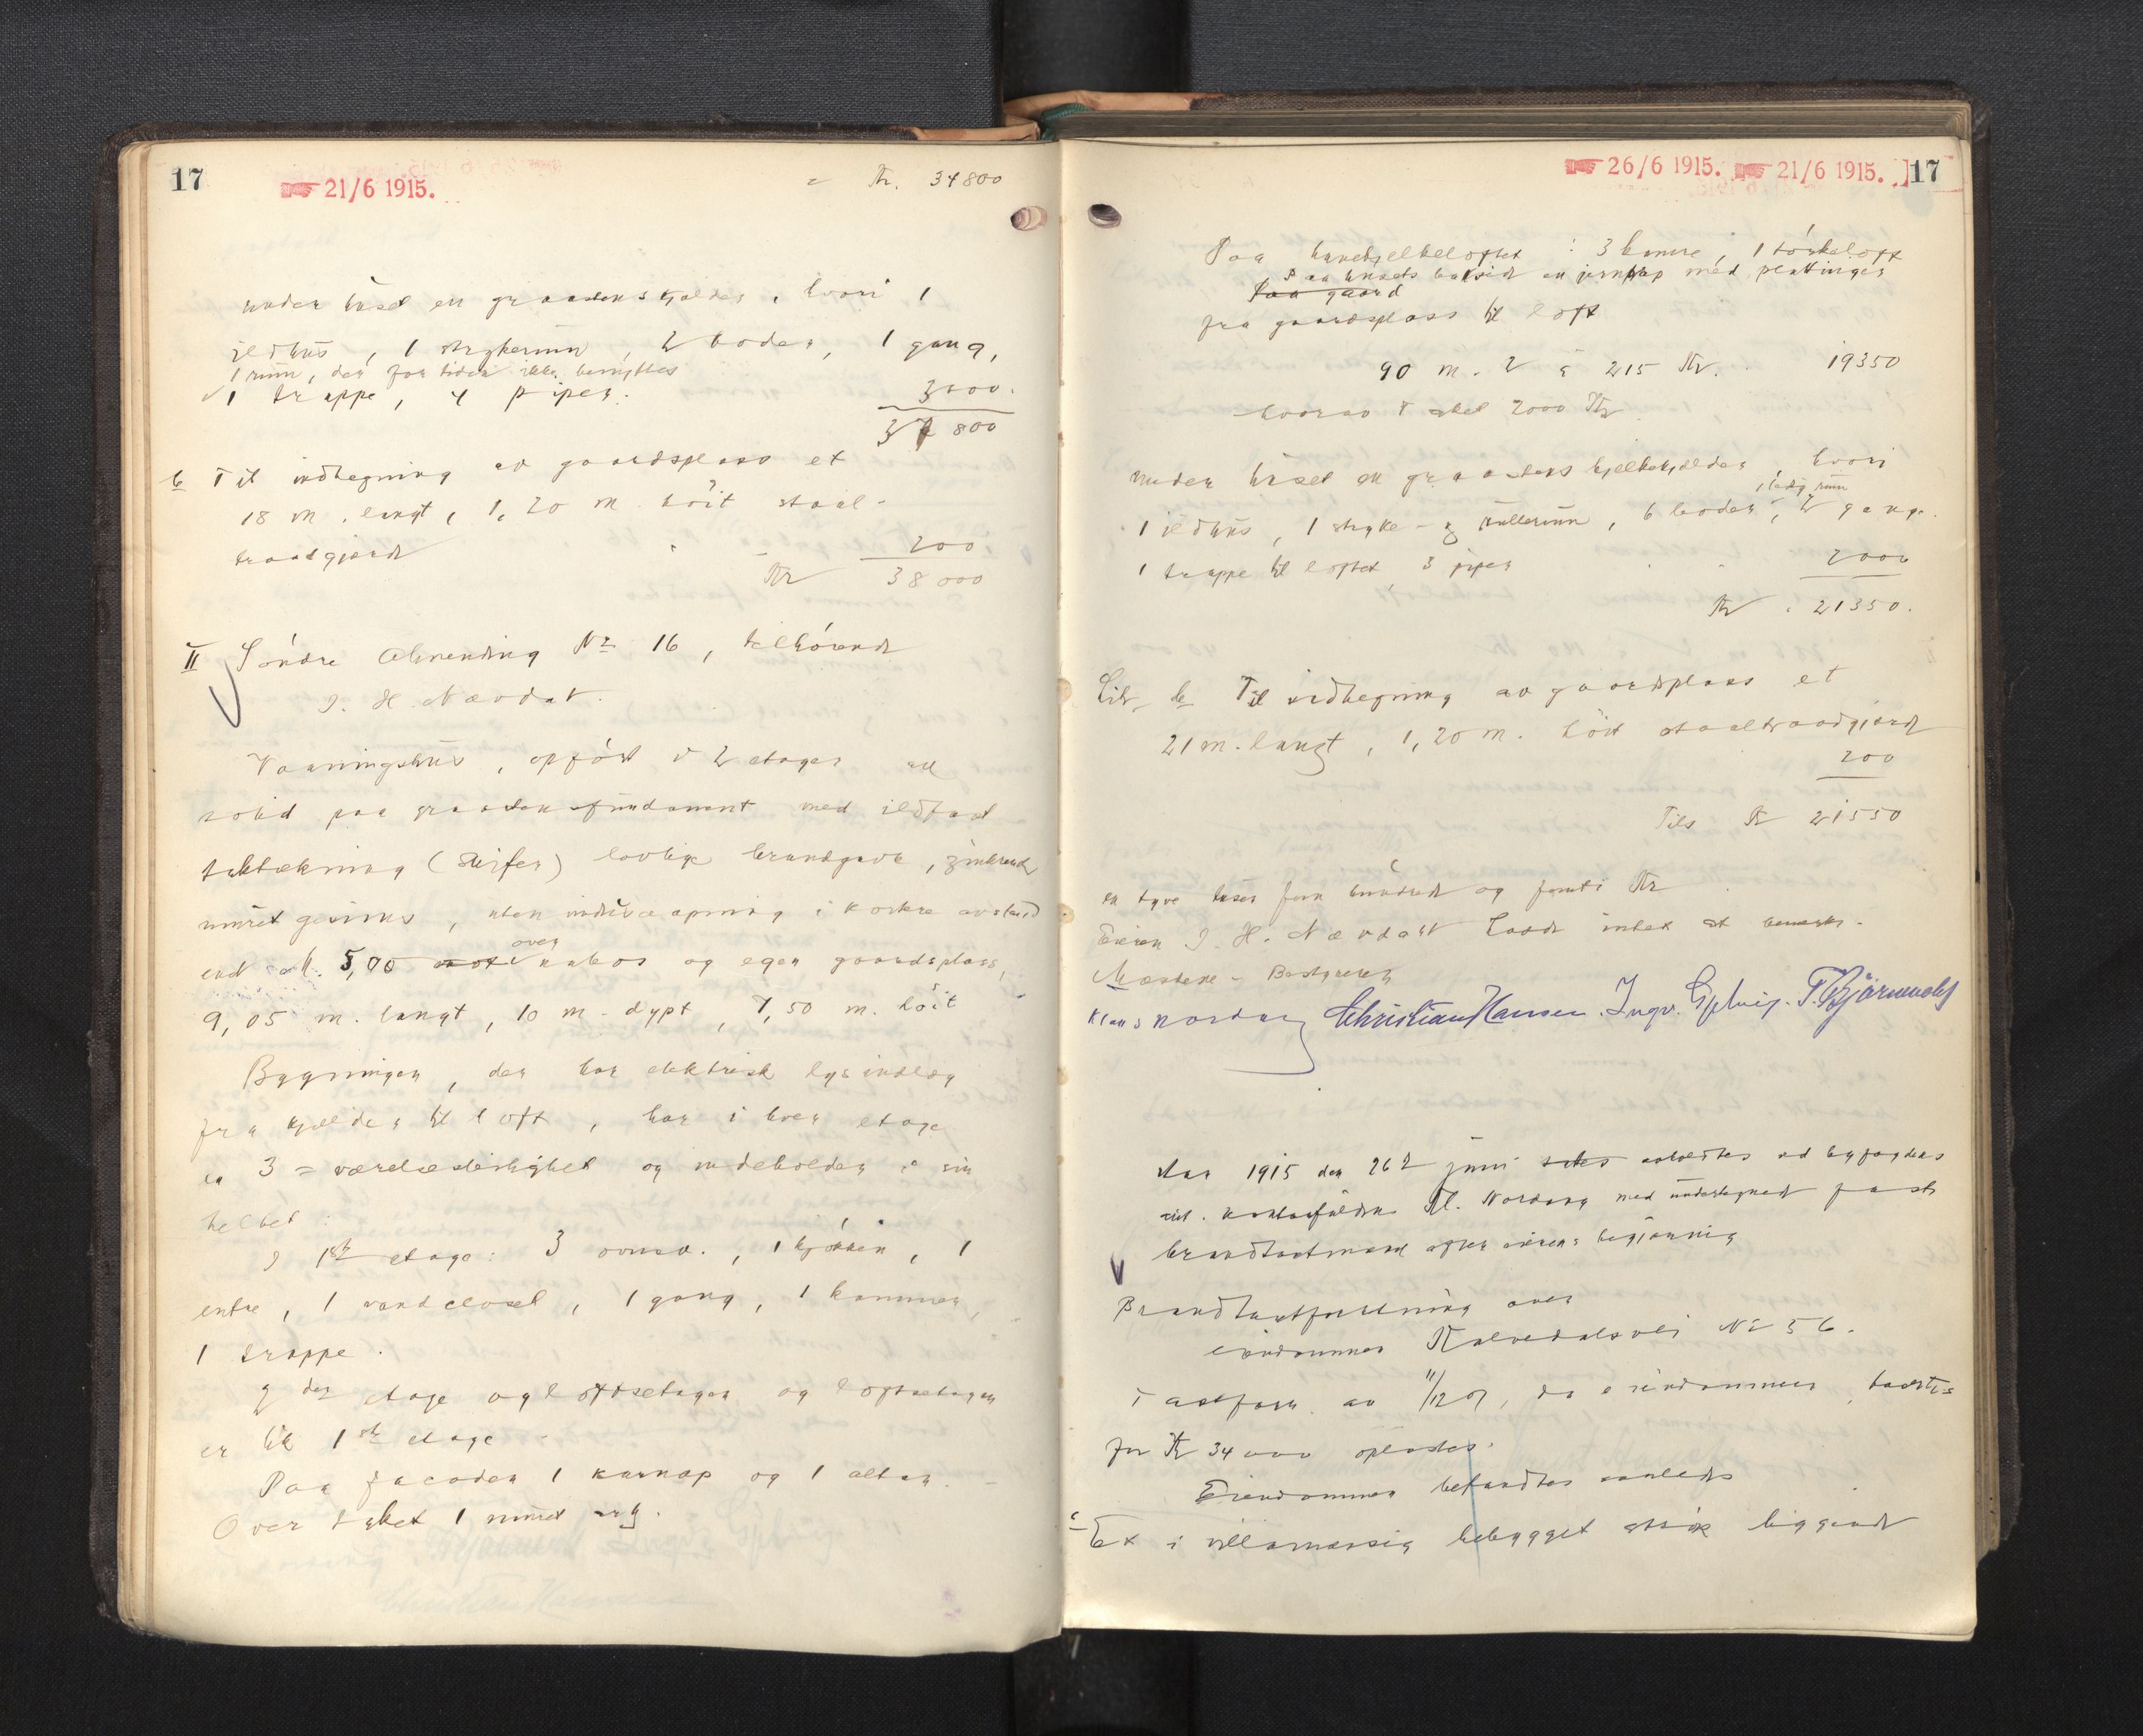 17
21/6 1915.
Kr. 34800
under huset en graastenskjelder, hvori 1
ildhus, 1 strykerum, 2 boder, 1 gang,
1 rum, der for tiden ikke benyttes
1 trappe, 4 piper. 3000.
37800
b Til indhegning av gaardsplass et
18 m. langt, 1,20 m. höit staal-
traadgjærde 200
Kr 38000
II Söndre Almending No 16, tilhörende
I. H. Nævdal.
Vaaningshus, opfört i 2 etager
solid paa graastensfundament med ildfast
taktækning (skifer) lovlige brandgavle,
muret gesims, uten indtil aapning i kortere avstand
end 5,00 over nabos og egen gaardsplass,
9,05 m. langt, 10 m. dypt, 7,50 m. höit
Bygningen, der har elektrisk lys indlag
fra kjelder til loft, har i hver etage
en 3 = værelsesleilighet og indeholder i sin
helhet:
I 1ste etage: 3 , 1 kjökken, 1
entre, 1 vandcloset, 1 gang, 1 kammer,
1 trappe.
2den etage og loftsetagen og loftsetagen
er lik 1ste etage
Paa facaden 1 karnap og 1 altan.
Over taket 1 muret ark.
26/6 1915. 21/6 1915. 17
Paa hanebjelkeloftet: 3 , 1 törkeloft
Paa husets bakside en jerntrap med plattinger
Paa gaard
fra gaardsplass til loft
90 m. 2 á 215 Kr. 19350
hvorav 2000 Kr
under huset en graastens kjelder, hvori
1 ledig rum
1 ildhus, 1 stryke- og rullerum, 6 boder, 2 gange.
1 trappe til loftet, 3 piper 2000
Kr. 21350.
Litr. b Til indhegning av gaardsplass et
21 m. langt, 1,20 m. höit staaltraadgjærde
200
Tils Kr 21550
en tyve tusen fem hundrede og femti Kr
Eieren I. H. Nævdal havde intet at bemerke.
Mæstene - Bestyreren
Klaus Nordang Christian Hansen. Ingv. Gjelvig. T. Bjørnevoll
Aar 1915 den 26de juni avholdtes ved byfogdens
aut. kontorfuldm. Kl. Nordang med undertegnede faste
brandtakstmænd efter eierens begjæring
Brandtakstforretning over
eiendommen Kalvedalsvei No 56.
Takstforr. av 11/12 07, da eiendommen takserties
for Kr 34000 oplæstes.
Eiendommen befandtes saaledes
a Et i villamæssig bebygget strök liggende